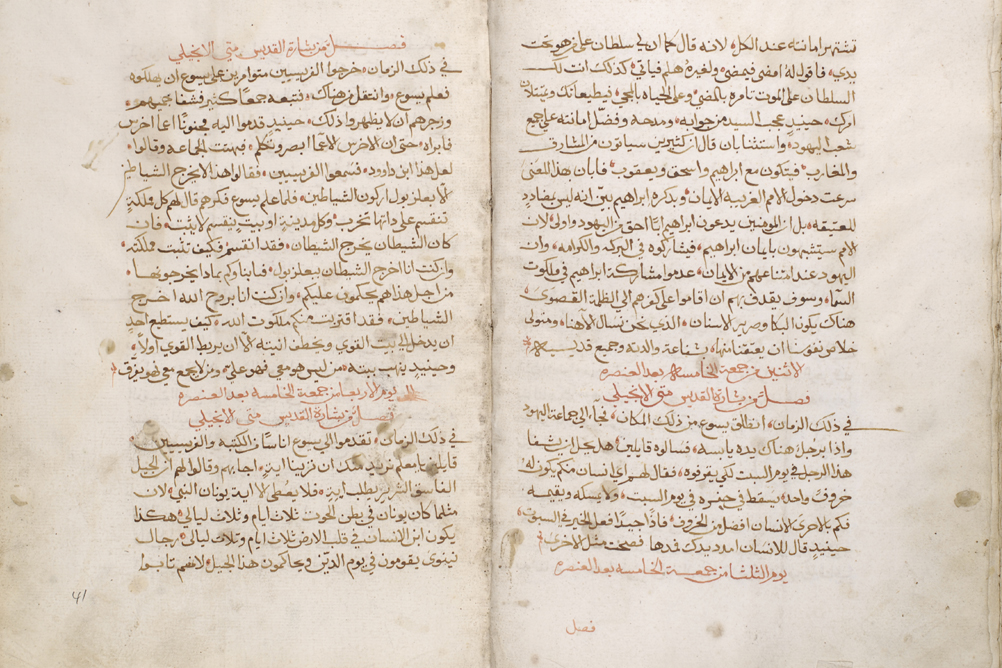 تشتهر امانته عند الكل لانه قال كما ان لي سلطان على من هو تحت
يدي فاقول له امضي فيمضي ولغيره هلم فياتي كذلك انت لك
السلطان على الموت تامره بالمضي وعلى الحياه بالمجي فيطيعانك ويمتثلان
امرك حينيذ عجب السيد من جوابه ومدحه وفضل امانته على جميع
شعب اليهود واستثنا بان قال ان كثيرين سياتون من المشارق
والمغارب فيتكون مع ابراهيم واسحق ويعقوب فابان هذا المعنى
سرعت دخول الامم الغريبه الايمان وبذكره ابراهيم بين انه ليس بضادد
للعتيقه بل ان المومنين يدعون ابراهيم ابا احق من اليهود واولى لان
الامم ستشبهون بايمان ابراهيم فيشاركوه في البركه والكرامه وان
اليهود عند امتناعهم من الايمان عدموا مشاركة ابراهيم في ملكوت
السما وسوف يقدف بهم ان اقاموا على كفرهم الي الظلمة القصوى
هناك يكون البكا وصرير الاسنان الذي نحن نسال الاهنا ومتولى
خلاص نفوسنا ان يعتقنا منها بشفاعة والدته وجميع قديسيه
الاثنين من جمعة الخامسه بعد العنصره
فصل من بشارة القديس متى الانجيلي
في ذلك الزمان انطلق يسوع من ذلك المكان فجا الي جماعة اليهود
واذا برجل هناك يده يابسه فسالوه قايلين هل يحل ان يشفا
هذا الرجل في يوم السبت لكي يقرفوه فقال لهم اي انسان منكم يكون له
خروف واحد يسقط في حفيره في يوم السبت ولا يمسكه ويقيمه
فكم بالاحرى الانسان افضل من الخروف فاذا جيدا فعل الخير في السبوت
حينيذ قال للانسان امدد يدك فمدها فصحت مثل الاخرى
يوم الثلثا من جمعة الخامسه بعد العنصره
فصل
فصل من بشارة القديس متى الانجيلي
في ذلك الزمان خرجوا الفريسيين متوامرين على يسوع ان يهلكوه
فعلم يسوع وانتقل من هناك فتبعه جمعا كثير فشفا جميعهم
وزجرهم ان لا يظهروا ذلك حينيذ قدموا اليه مجنونا اعما اخرس
فابراه حتى ان الاخرس الاعما ابصر وتكلم فبهتت الجماعة وقالوا
لعل هذا ابن داوود فسمعوا الفريسيين فقالوا هذا لا يخرج الشياطين
الا بباعلزبول اركون الشياطين فلما علم يسوع فكرهم قال لهم كل مملكة
تنقسم على ذاتها تخرب وكل مدينة او بيت ينقسم لا يثبت فان
كان الشيطان يخرج الشيطان فقد انقسم فكيف تثبت مملكته
وان كنت انا اخرج الشيطان ببعلزبول فابناوكم بماذا يخرجونها
من اجل هذا هم يحكمون عليكم وان كنت انا بروح الله اخرج
الشياطين فقد اقتربت منكم ملكوت الله كيف يستطيع احد
ان يدخل الي بيت القوي ويخطف انيته الا ان يربط القوي اولا
وحينيذ ينهب بيته من ليس هو معي فهو علي ومن لا يجمع معي فهو يفرق
يوم الاربعا من جمعة الخامسه بعد العنصره
فصل من بشارة القديس متى الانجيلي
في ذلك الزمان تقدموا الي يسوع اناسا من الكتبه والفريسيين
قايلين يا معلم نريد منك ان ترينا اية اجابهم وقال لهم ان الجيل
الفاسق الشرير يطلب اية فلا يعطى الا اية يونان النبي لان
مثلما كان يونان في بطن الحوت ثلاث ايام وثلاث ليالي هكذا
يكون ابن الانسان في قلب الارض ثلاث ايام وثلاث ليالي رجال
نينوى يقومون في يوم الدين ويحاكمون هذا الجيل لانهم تابوا
41